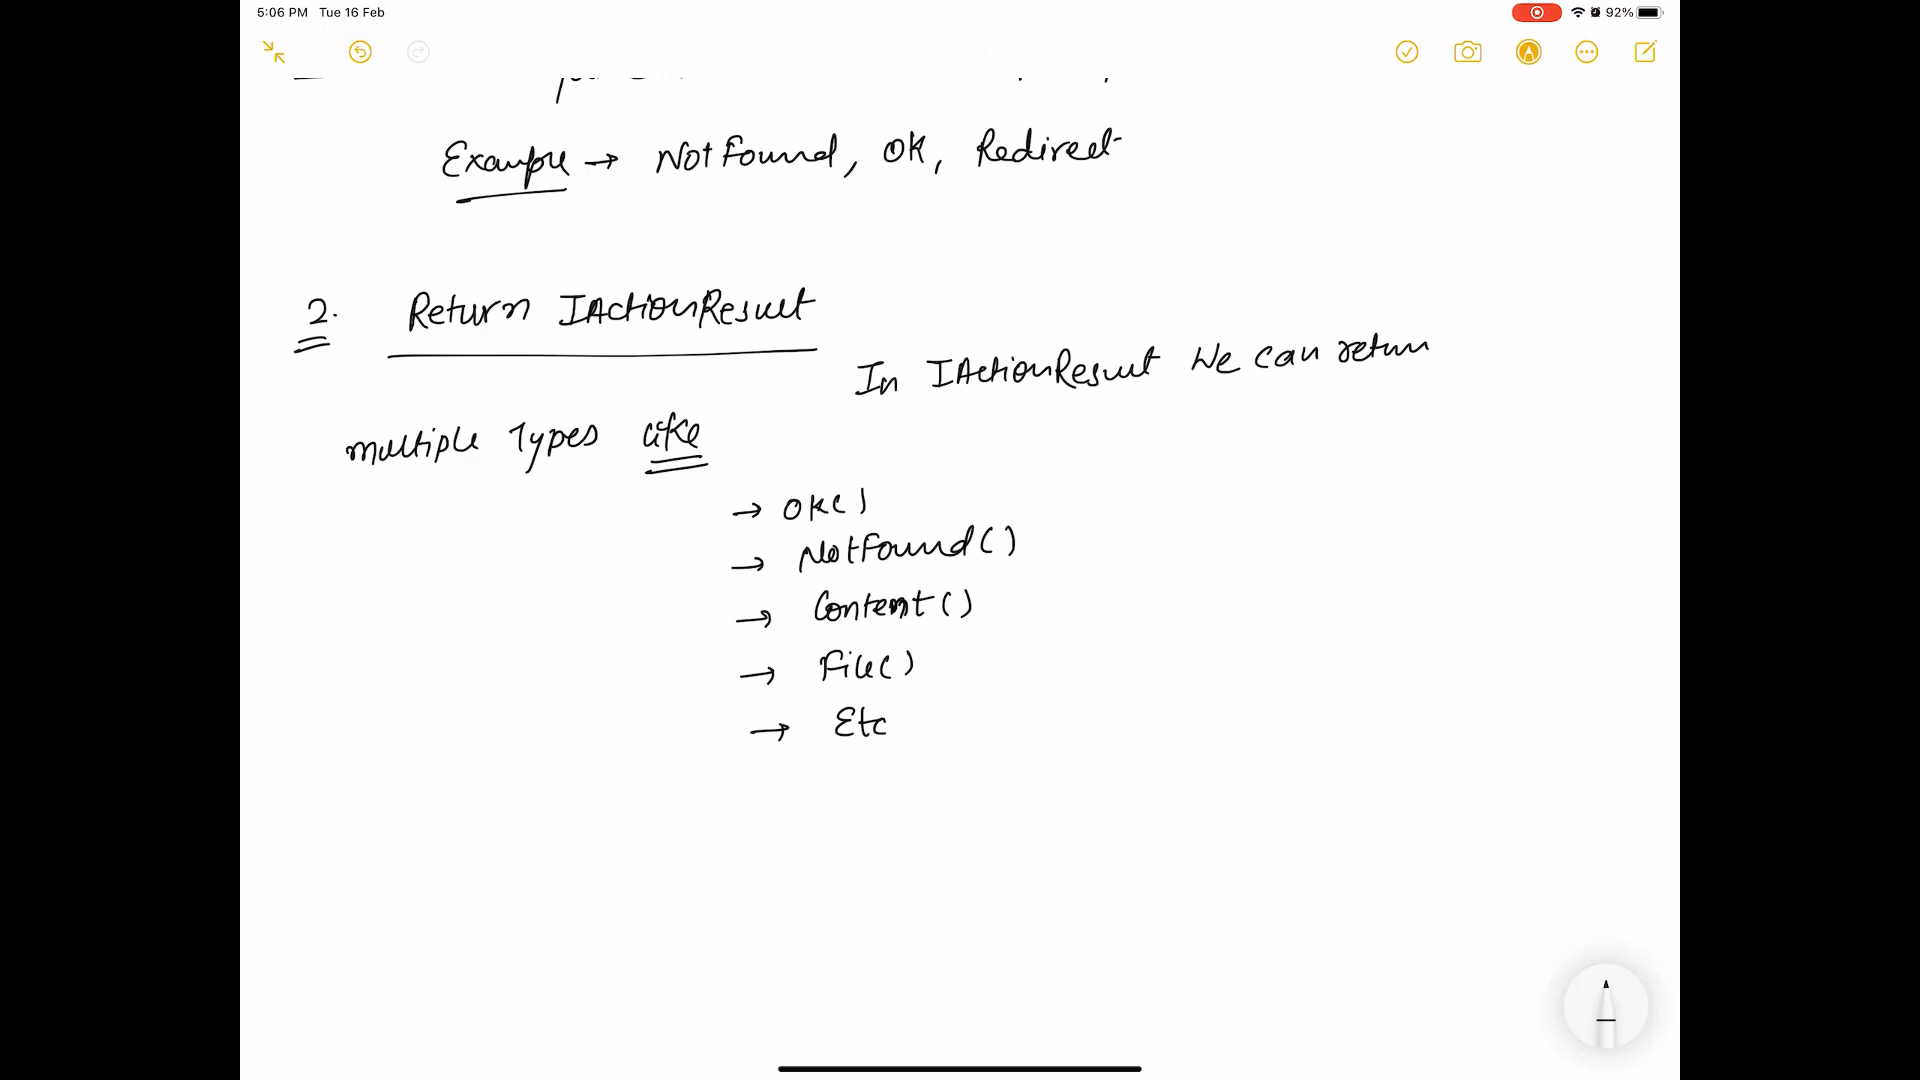 5:06 PM Tue 16 Feb
92%
Example → NotFound, OK, Redirect
2. Return IActionResult
In IActionResult We can return
multiple Types like
→ OK()
→ NotFound()
→ Content()
→ File()
→ Etc